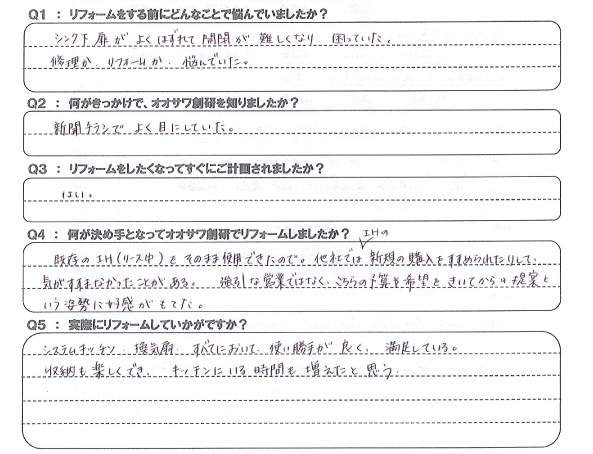 Q1 : リフォームをする前にどんなことで悩んでいましたか？
シンク下扉がよくはずれて開閉が難しくなり困っていた。
修理か、リフォームか、悩んでいた。
Q2 : 何がきっかけで、オオサワ創研を知りましたか？
新聞チラシでよく目にしていた。
Q3 : リフォームをしたくなってすぐにご計画されましたか？
はい。
Q4 : 何が決め手となってオオサワ創研でリフォームしましたか？
IHの
既存のIH(リース中)をそのまま使用できたので。他社では新規の購入をすすめられたりして、
気がすすまなかったことがある。強引な営業ではなく、こちらの予算や希望をきいてからの提案と
いう姿勢に好感がもてた。
Q5 : 実際にリフォームしていかがですか？
システムキッチン、換気扇、すべてにおいて、使い勝手が良く、満足している。
収納も楽しくでき、キッチンにいる時間も増えたと思う。